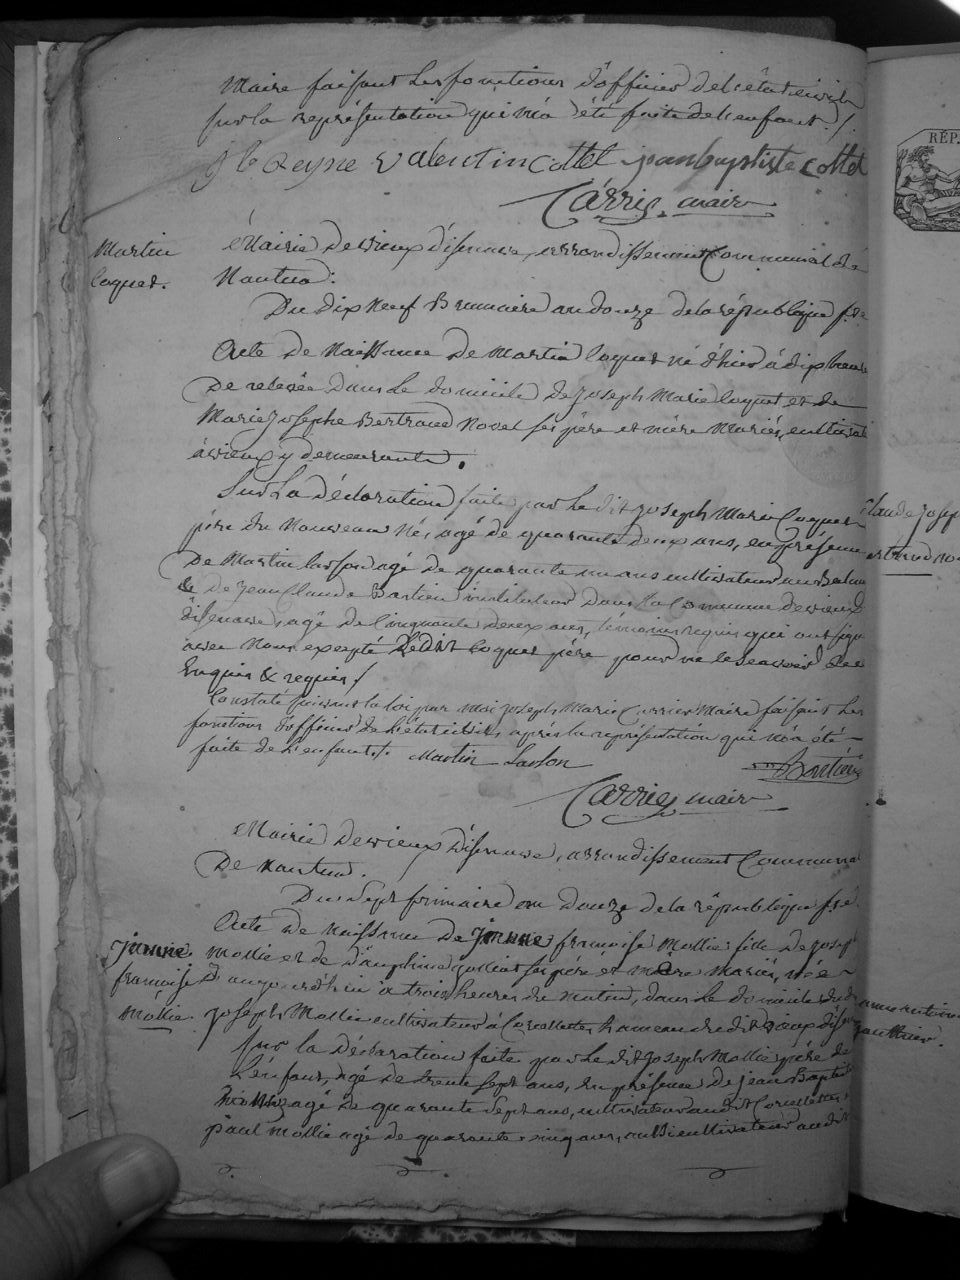 Maire faisant les fonctions d'officier de l'état civil
sur la représentation qui m'a été faite de l'enfant ./.
J b Reyne Valentin Collet jean baptiste Collet
Carrier maire
Martin
Coquet.
Mairie de vieux d'isenave, arrondissement Communal de
Nantua.
Du dix neuf Brumaire an douze de la république f.se
Acte de Naissance de Martin Coquet né d'hier à dix heures
De relevée dans le domicile de Joseph Marie Coquet et de
Marie Josephe Bertrand Novet ses père et mère Mariés, cultivat
à vieux y demeurants.
Sur La Déclaration faite par Le dit Joseph Marie Coquet
père du Nouveau Né, agé de quarante deux ans, en présence
De Martin Lasson agé de quarante un ans cultivateur au
& De Jean Claude Bastien instituteur dans La Commune de vieux
d'isenave, agé de Cinquante deux ans, temoins requis qui ont signé
avec Nous excepté Ledit Coquet père pour ne le scavoir de ce
Enquis & requis ./
Constaté suivant la loi par moi joseph Marie Carrier Maire faisant Les
fonctions d'officier de L'état civil, après la représentation qui m'a été
faite de L'enfant ./. Martin Lasson
Carrier maire
Mairie De vieux D'isenave, arrondissement Communal
De Nantua.
Du Sept frimaire an Douze de la république f.se
Acte De Naissance De jeanne françoise Mollie fille De joseph
jeanne
françoise
Mollie.
Mollie et de Dauphine ses père et mère Mariés, née
D'aujourd'hui à trois heures du Matin, dans le domicile du dit
joseph Mollie cultivateur à hameau du dit vieux d'isenave
Sur la Déclaration faite par Le dit Joseph Mollie père de
L'enfant, agé de trente sept ans, En présence De jean Baptiste
agé de quarante sept ans, cultivateur au dit
paul Mollie agé de quarante cinq ans, aussi cultivateur au dit
RÉP.
Claude Josep